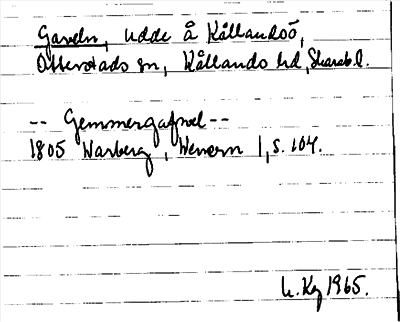 Gaveln, udde å Kållandsö,
Otterstads sn, Kållands hd, Skarab l.
-- Gemmergafvel --
1805 Warberg, Wenern 1, s. 104.
1965.